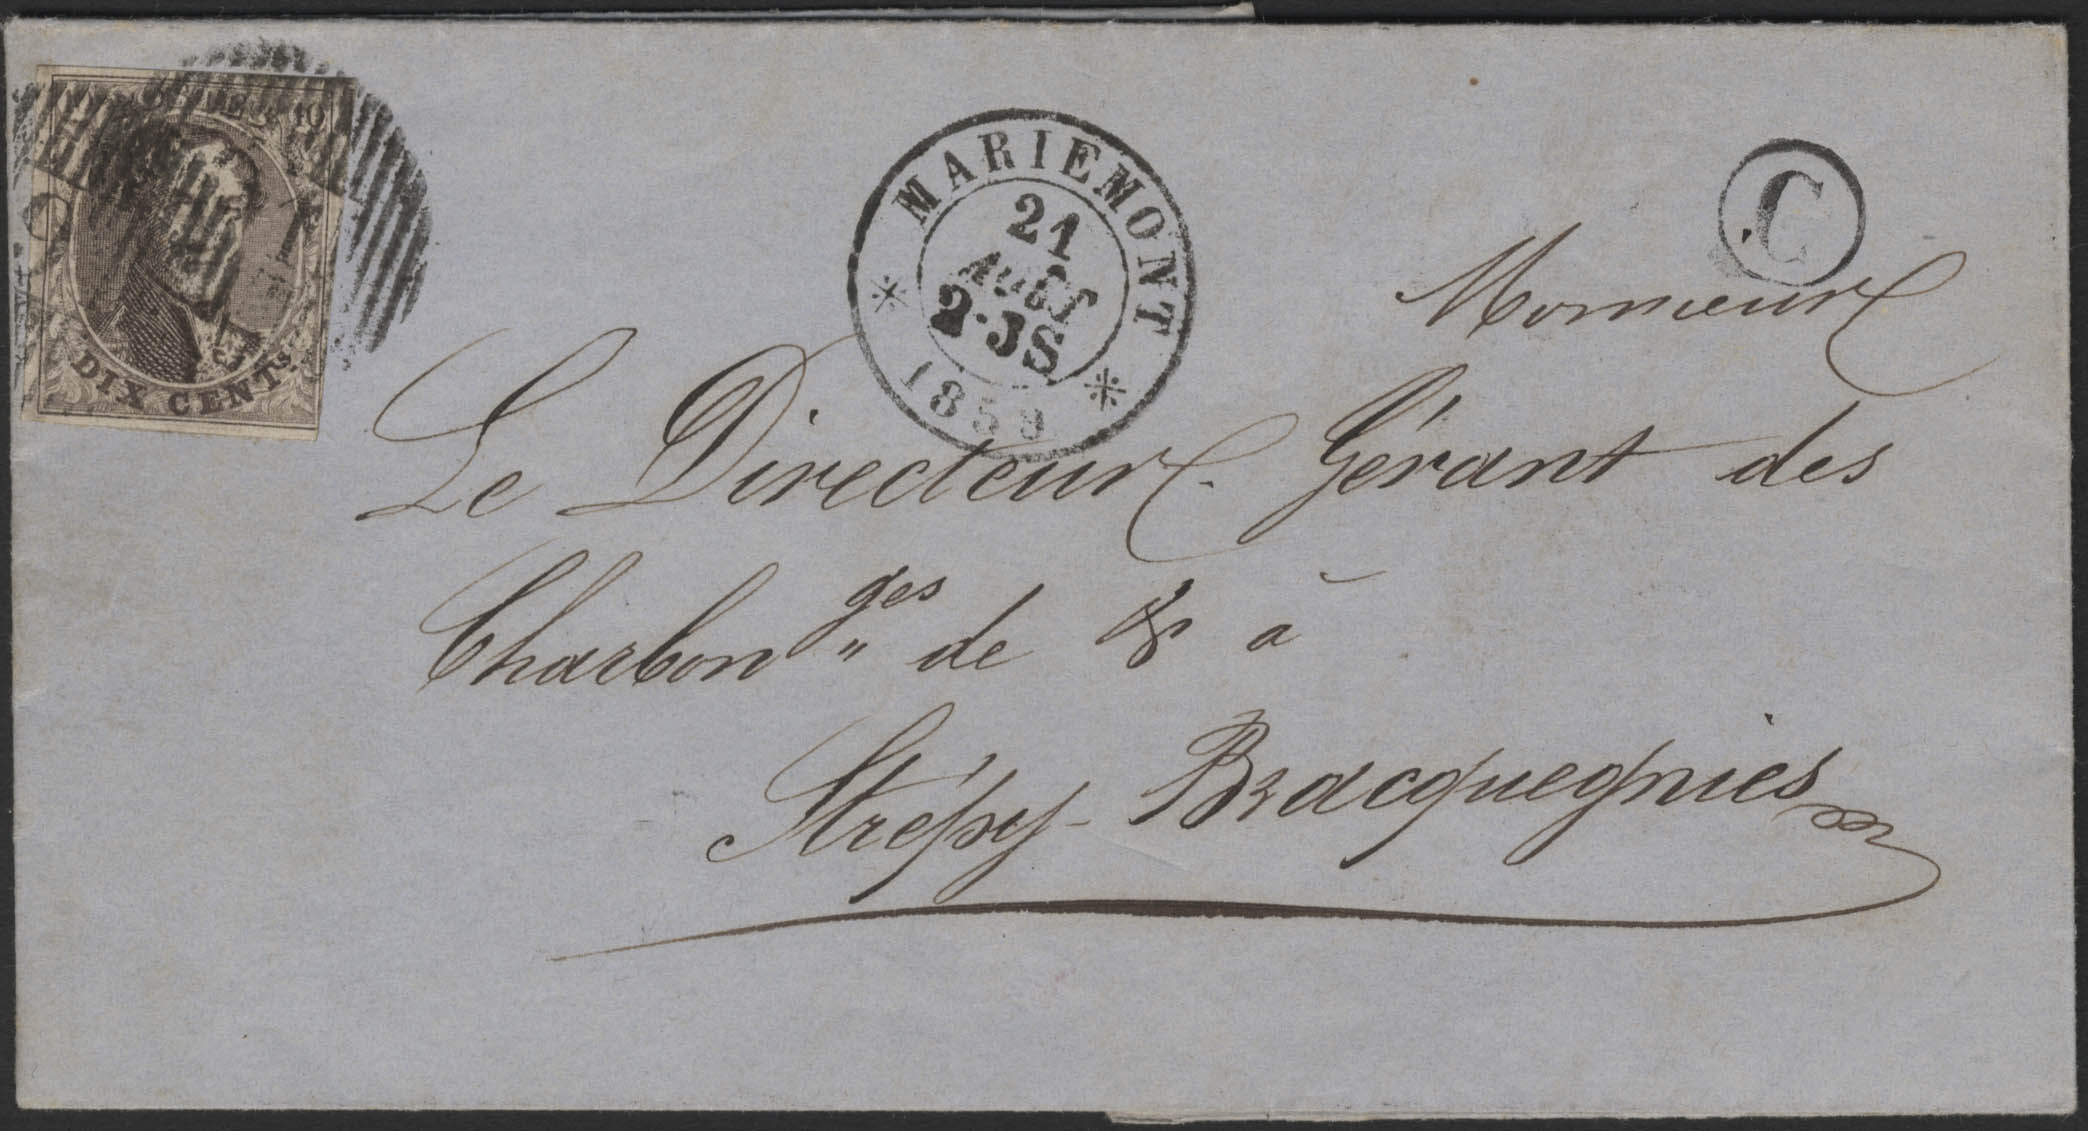 POSTES 10
DIX CENTS.
MARIEMONT
21
AOUT
2·3S
1859
C
Monsieur
Le Directeur Gérant des
Charbonges de & à
Strépy-Bracquegnies